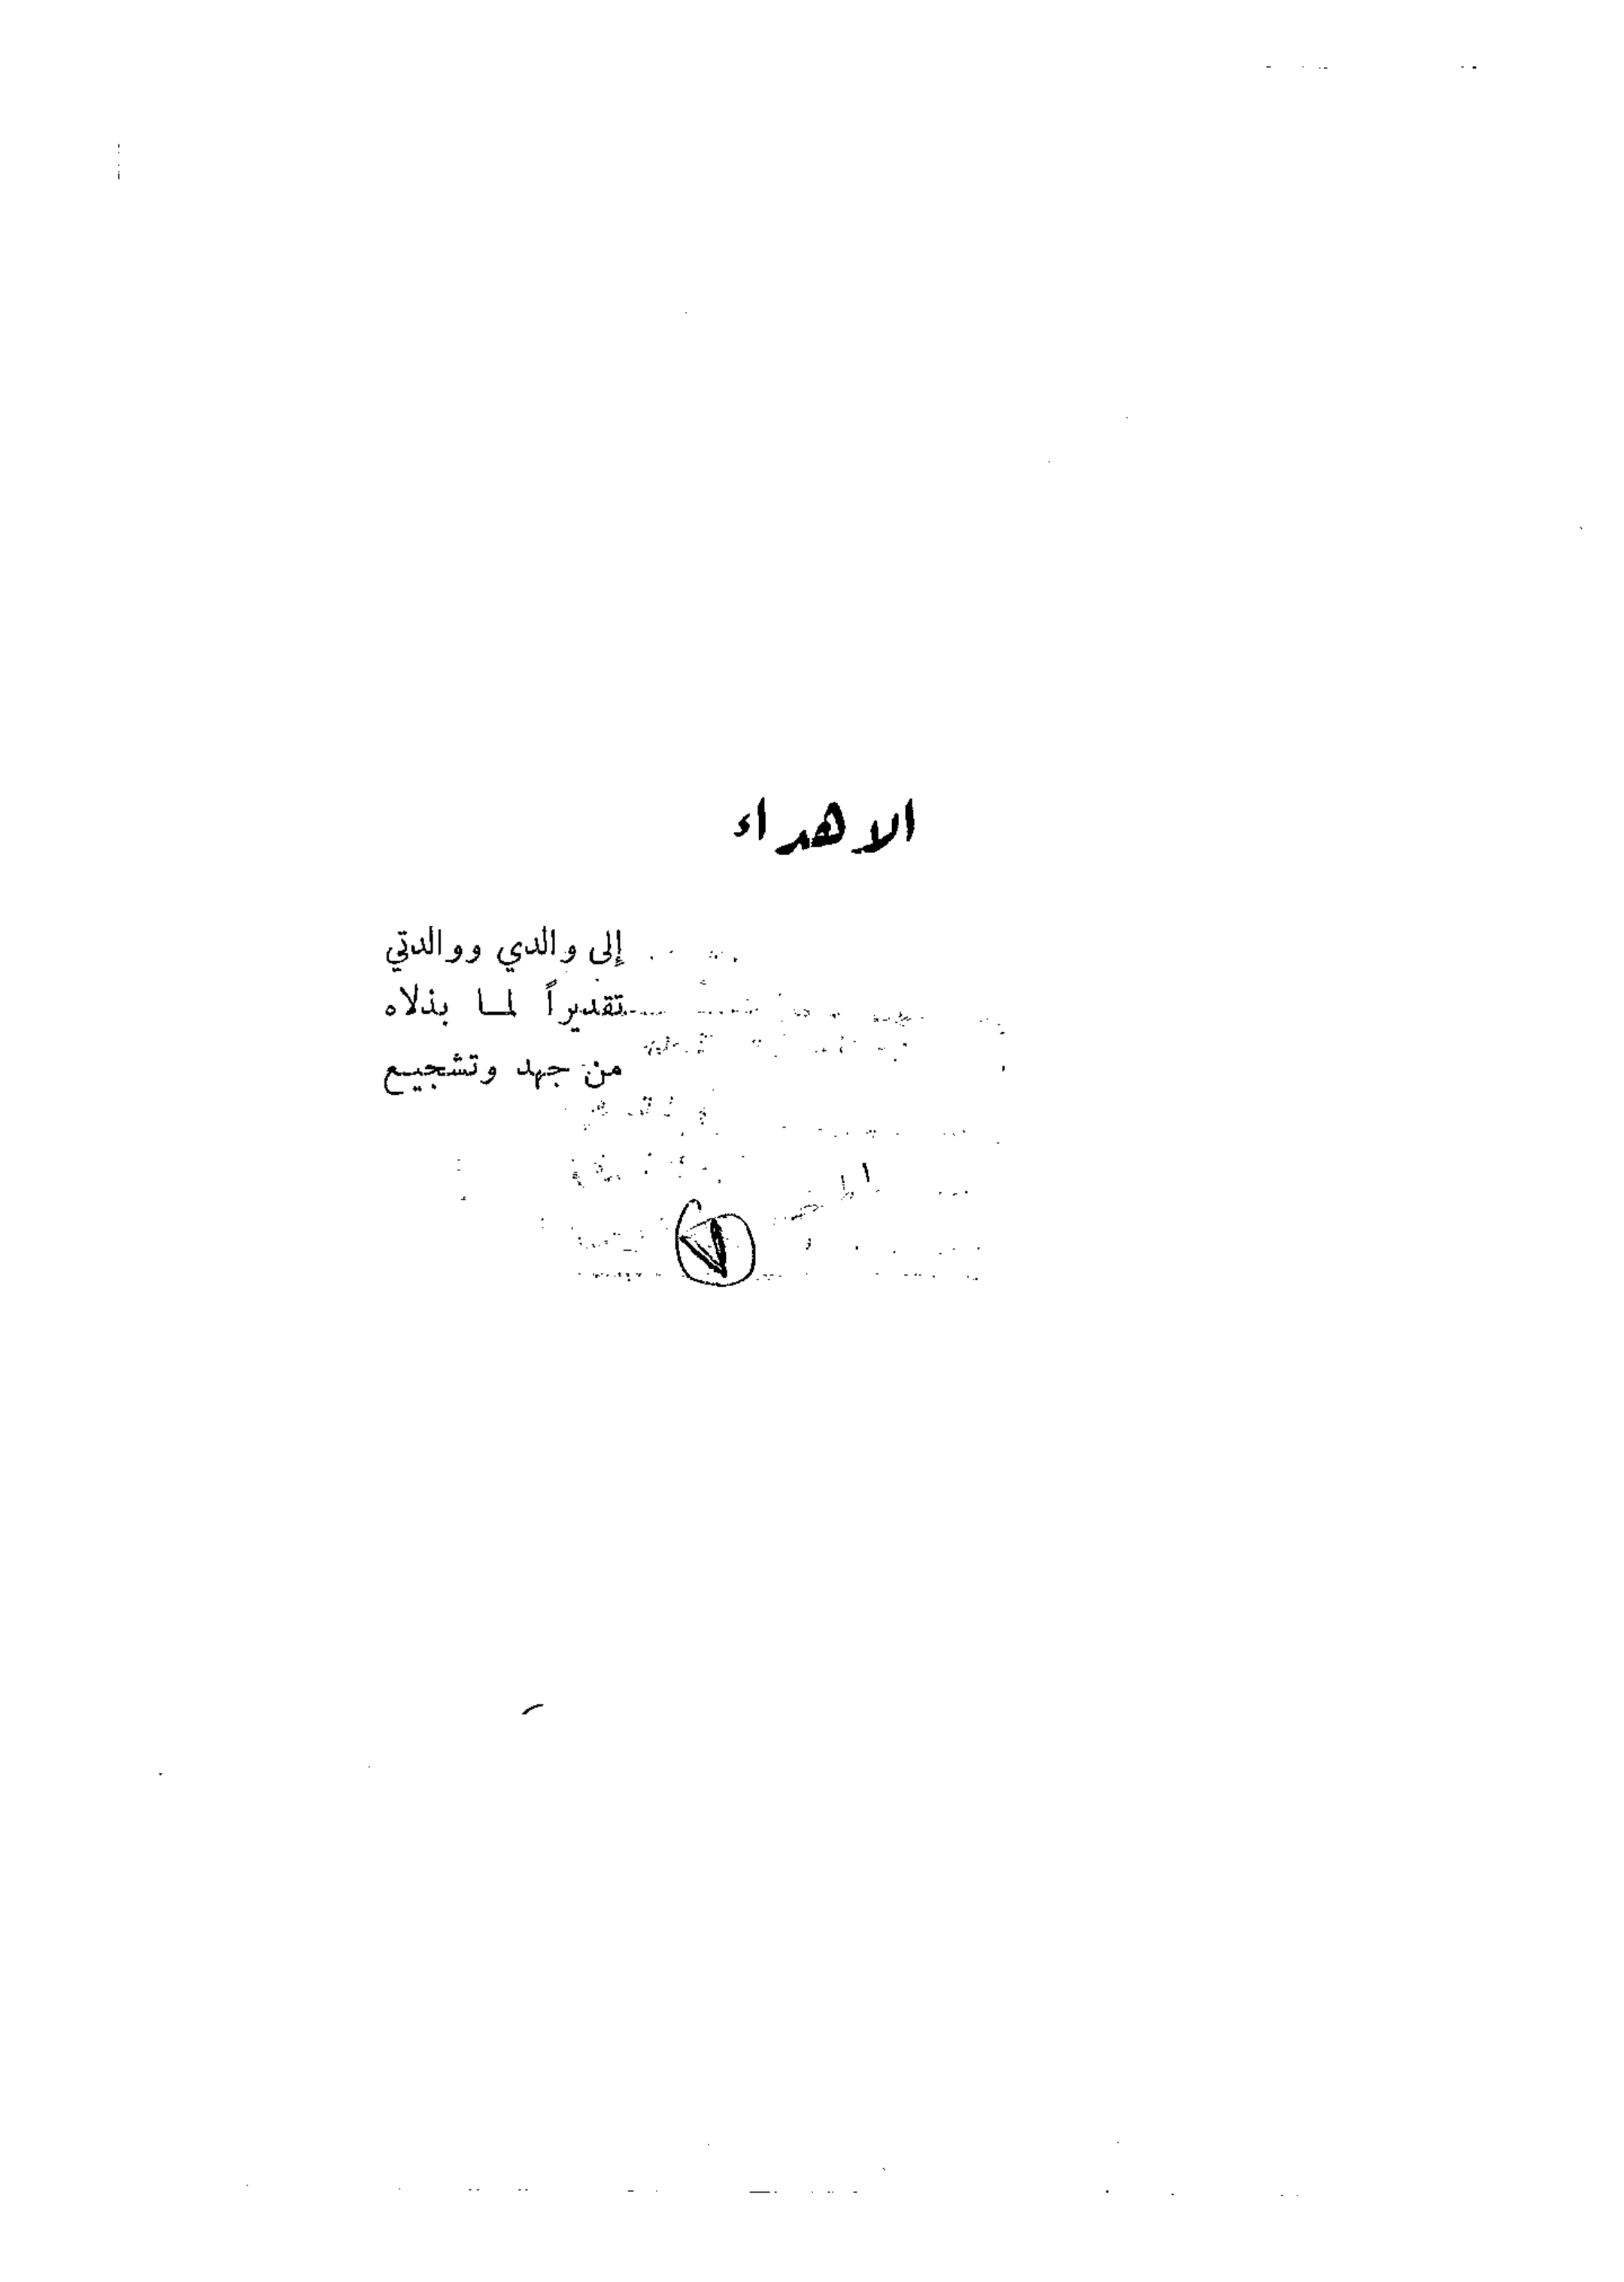 الاهداء
إلى والدي ووالدتي
تقديراً لما بذلاه
من جهد وتشجيع